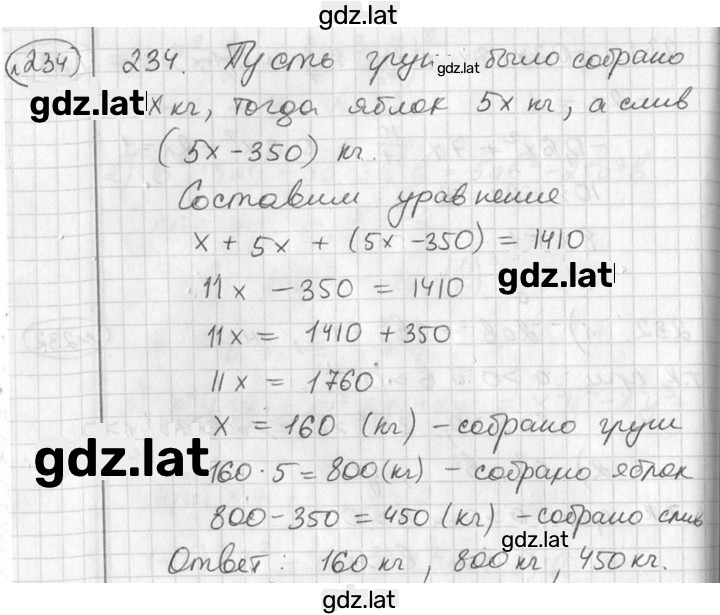 gdz.lat
№234 234. Пусть груш было собрано
gdz.lat
gdz.lat x кг, тогда яблок 5x кг, а слив
(5x - 350) кг.
Составим уравнение
x + 5x + (5x - 350) = 1410
gdz.lat
11x - 350 = 1410
11x = 1410 + 350
11x = 1760
x = 160 (кг) - собрано груш
gdz.lat
160 · 5 = 800 (кг) - собрано яблок
800 - 350 = 450 (кг) - собрано слив
gdz.lat
Ответ: 160 кг, 800 кг, 450 кг.
gdz.lat